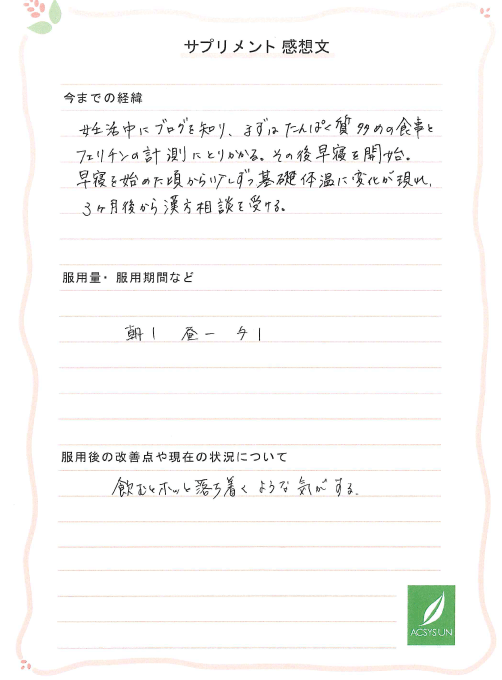 サプリメント 感想文
今までの経緯
妊活中にブログを知り、まずはたんぱく質多めの食事と
フェリチンの計測にとりかかる。その後早寝を開始。
早寝を始めた頃から少しずつ基礎体温に変化が現れ、
3ヶ月後から漢方相談を受ける。
服用量・服用期間など
朝1 昼ー 夕1
服用後の改善点や現在の状況について
飲むとホッと落ち着くような気がする。
ACSYSUN